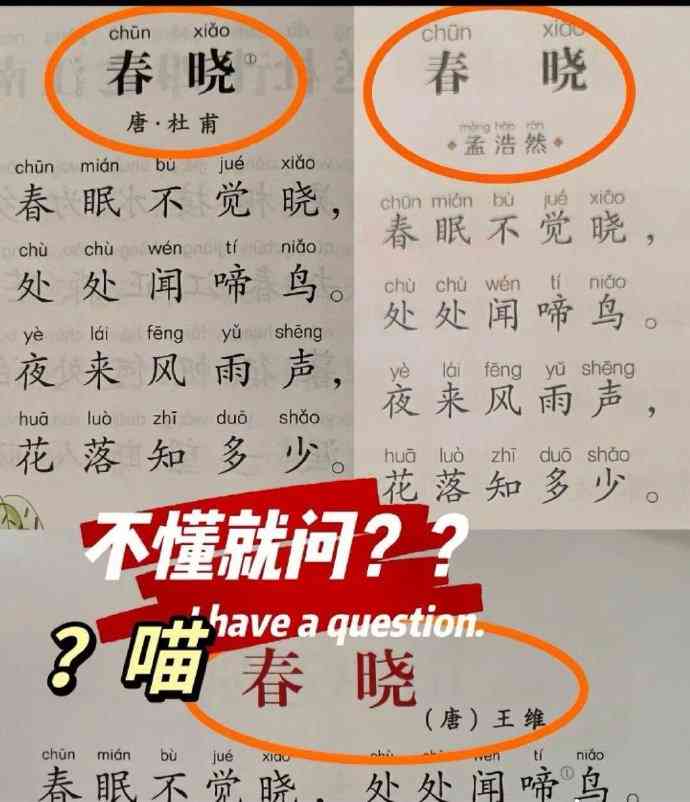 chūn xiǎo
春 晓①
唐·杜甫
chūn mián bù jué xiǎo
春眠不觉晓，
chù chù wén tí niǎo
处处闻啼鸟。
yè lái fēng yǔ shēng
夜来风雨声，
huā luò zhī duō shǎo
花落知多少。
chūn xiǎo
春 晓
mèng hào rán
孟浩然
chūn mián bù jué xiǎo
春眠不觉晓，
chù chù wén tí niǎo
处处闻啼鸟。
yè lái fēng yǔ shēng
夜来风雨声，
huā luò zhī duō shǎo
花落知多少。
不懂就问？？
I have a question.
？喵
春 晓
（唐）王维
chūn mián bù jué xiǎo chù chù wén tí niǎo
春眠不觉晓，处处闻啼①鸟。